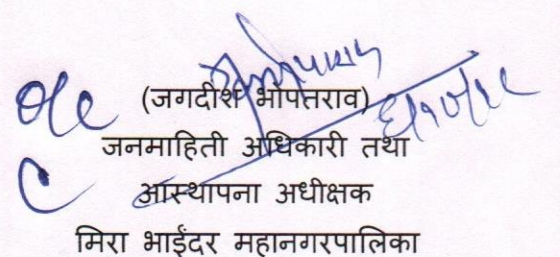 o/c (जगदीश भोपतराव)
जनमाहिती अधिकारी तथा
आस्थापना अधीक्षक
मिरा भाईंदर महानगरपालिका